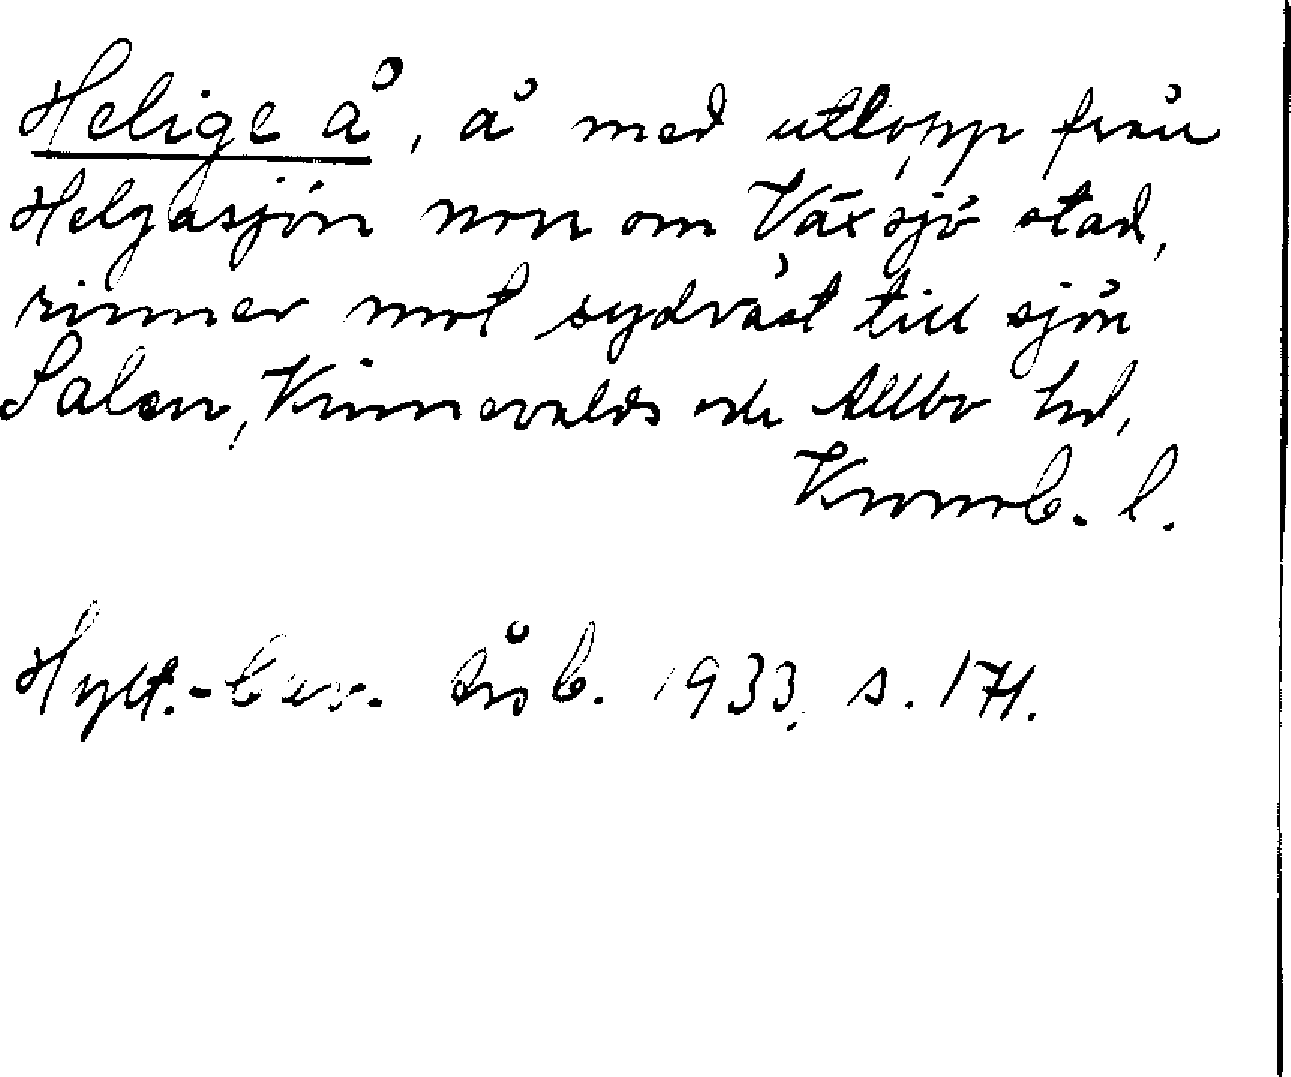 Helige å, å med utlopp från
Helgasjön norr om Växsjö stad,
rinner mot sydväst till sjön
Salen, Kinnevalds och Allbo hd,
Kronob. l.
Hylt.-Cav. Årsb. 1933, s. 171.